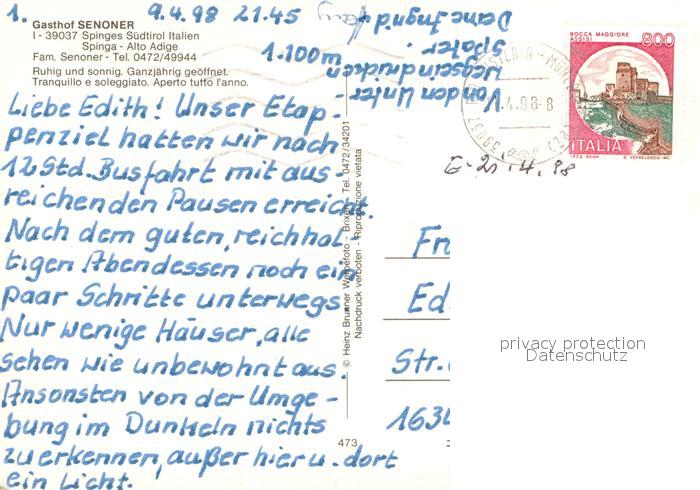 1. 9.4.98 21.45
Gasthof SENONER
I - 39037 Spinges Südtirol Italien
Spinga - Alto Adige
Fam. Senoner - Tel. 0472/49944
1.100m
Ruhig und sonnig. Ganzjährig geöffnet.
Tranquillo e soleggiato. Aperto tutto l'anno.
Liebe Edith! Unser Etap-
penziel hatten wir nach
12 Std. Busfahrt mit aus-
reichenden Pausen erreicht.
Nach dem guten, reichhal-
tigen Abendessen noch ein
paar Schritte unterwegs.
Nur wenige Häuser, alle
sehen wie unbewohnt aus.
Ansonsten von der Umge-
bung im Dunkeln nichts
zu erkennen, außer hier u. dort
ein Licht.
Von den
später.
Deine Ingrid +
© Heinz Brunner Werbefoto - Brixen - Tel. 0472/34201
Nachdruck verboten - Riproduzione vietata
473
ROCCA MAGGIORE
ASSISI
800
ITALIA
.4.98-8
39037
E - 21.4.98
Fr
Ed
Str.
163
privacy protection
Datenschutz